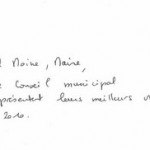 Maire,
Conseil municipal
présentent leurs meilleurs v
2010.